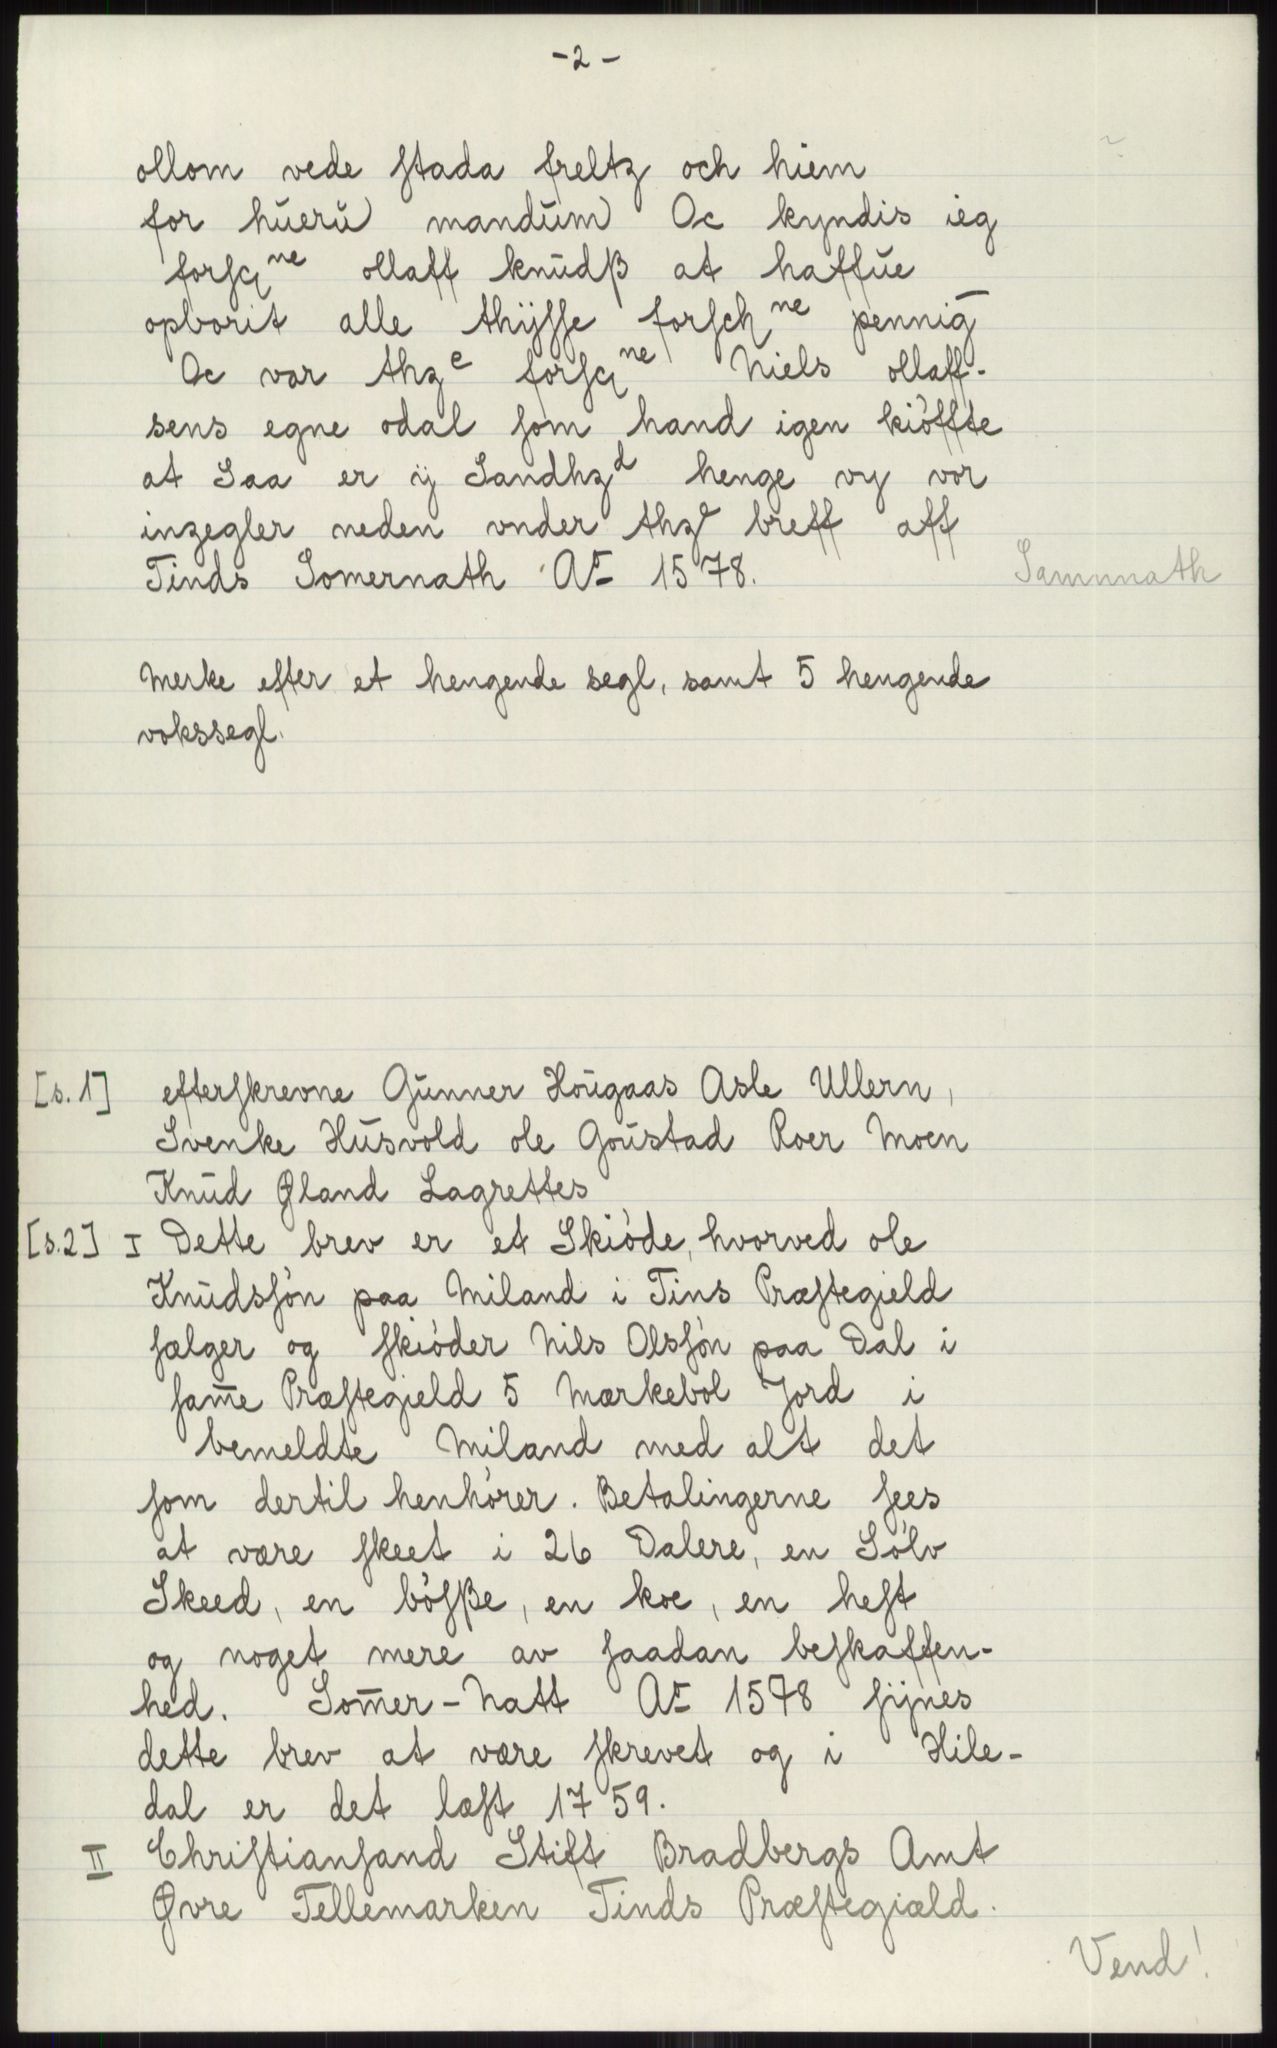 -2-
ollom vede stada freltz och hiem
for hŭerŭ mandŭm Oc kyndis ieg
forsq ne ollaff knŭdß at haffŭe
opborit alle thÿsse forsch ne pennig̅
Oc var thz e forsq ne Niels ollaff-
sens egne odal som hand igen kiöffte
at Saa er ij Sandhz d henge vy vor
inzegler neden vnder thz e breff aff
Tinds Somernath Ao 1578.
Samnnath
Merke efter et hengende segl, samt 5 hengende
vokssegl.
[s.1] efterskrevne Gŭnner Hoŭgaas Asle Ullern,
Svenke Hŭsvold ole Goŭstad Roer Moen
Knŭd Øland Lagrettes
[s.2] I Dette brev er et Skiöde, hvorved ole
Knŭdssön paa Miland i Tins Præstegield
sælger og skiöder Nils Olssön paa Dal i
sam̅e Præstegield 5 Mærkebol Jord i
bemeldte Miland med alt det
som dertil henhörer. Betalingerne sees
at være skeet i 26 Dalere, en Sölv
Skeed, en bösße, en koe, en hest
og noget mere av saadan beskaffen-
hed. Som̅er-Natt Ao 1578 sÿnes
dette brev at være skrevet og i Hile-
dal er det læst 1759.
II Christiansand Stift Bradbergs Amt
Øvre Tellemarken Tinds Præstegiæld.
Vend!